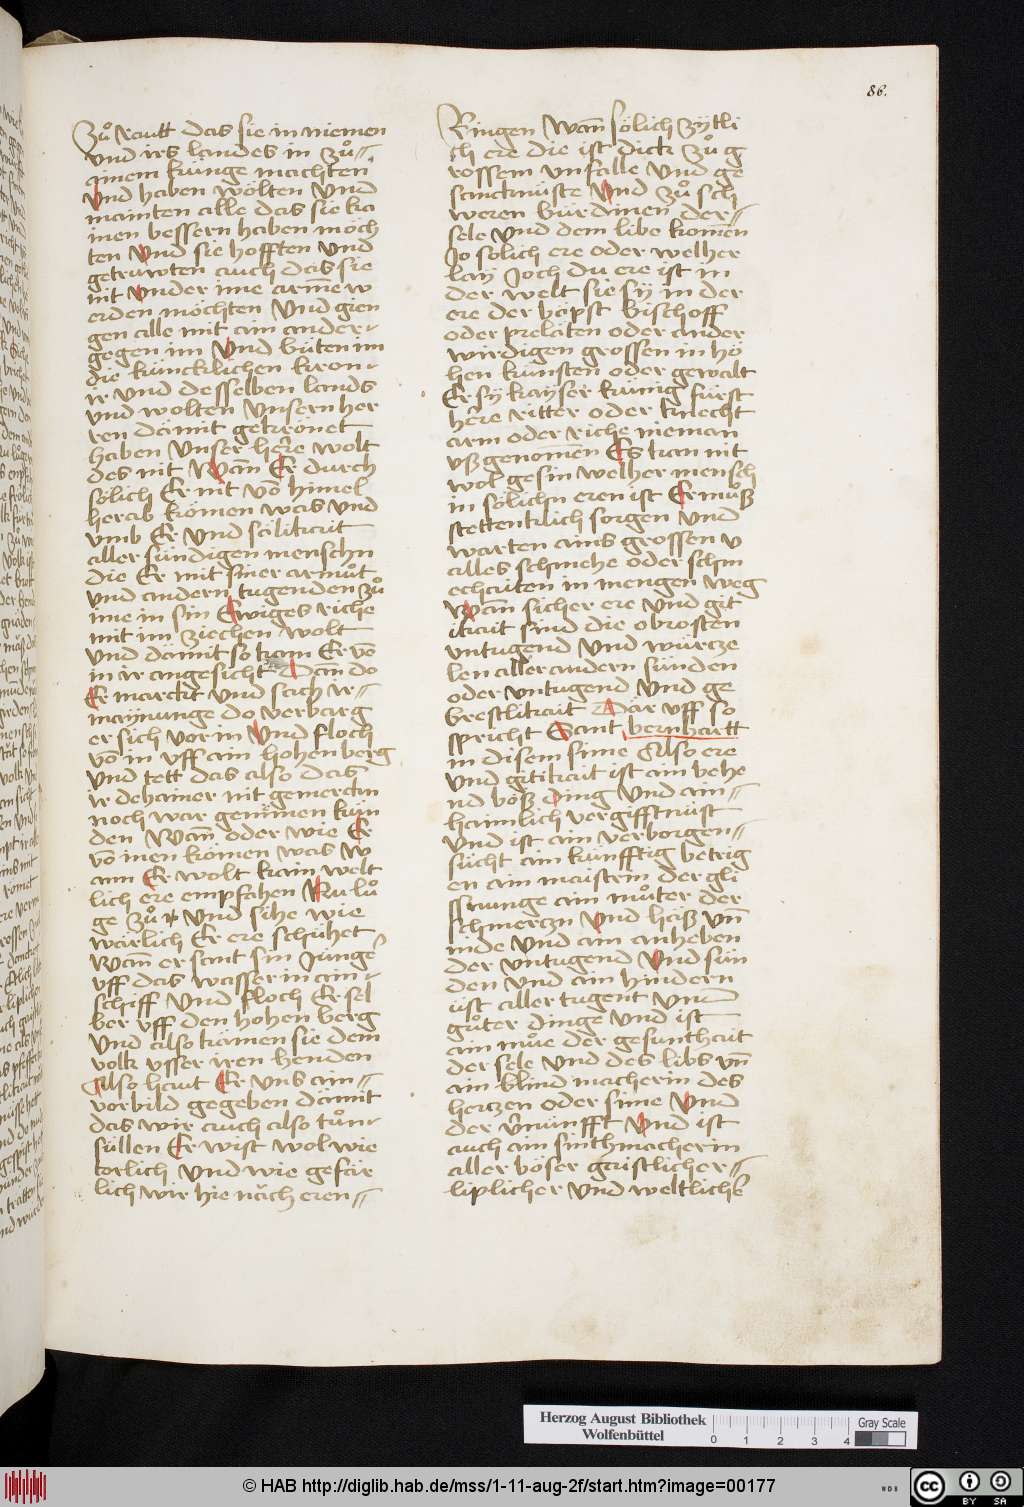 86.
Zuͦ rautt das sie in niemen
vnd irs landes in zuͦ⸗
ainem künge machten
Vnd haben wölten Vnd
mainten alle das sie ka
inen bessern haben möch
ten Vnd sie hofften Vnd
getruwten auch das sie
nit Vnder ime arme w
erden möchten Vnd gien
gen alle mit ain ander⸗
gegen im Vnd büten im
die küncklichen kron⸗
ir Vnd desselben lands
vnd wolten Vnsern her
ren dämit gekrönet
haben Vnser here wolt
des nit Wañ Er durch
sölich Er nit võ himel
herab kömen was vnd
vmb Er Vnd sälikait
aller sündigen menschn
die Er mit siner armuͦt
vnd andern tugenden zuͦ
ime in sin Ewiges riche
mit im ziechen wolt
vnd dämit so kam Er võ
in ir angesicht Dañ do
Er marckt vnd sach ir⸗
maynunge do verbarg
er sich vor in Vnd floch
võ in vff ain hohen berg
Vnd tett das also das
ir dehainer nit gemercken
noch war gemmen kün
den Wañ oder wie Er
võ inen kömen was W
ann Er wolt kain welt
lich ere empfahen Nu luͦ
ge zuͦ Vnd sihe wie
wärlich Er ere schühet
Wañ er sant sin Junge
vff das wasser in ain⸗
schiff Vnd floch Er sel
ber vff den hohen berg
Vnd also kamen sie dem
volk vsser iren henden
Also haut Er Vns ain⸗
vorbild gegeben dämit
das wir auch also tuͦn⸗
süllen Er wist wol wie
torlich Vnd wie gefär
lich wir hie näch eren⸗
Ringen Wañ sölich zytli
ch ere die ist dick zuͦ g
rossem vnfalle Vnd ge
sanckmüste Vnd zuͦ sch
weren bürdinen der⸗
sele Vnd dem libe komen
Jo solich ere oder welher
lay Joch du ere ist in
der welt sie sy in der
ere der bäpst bischoff
oder prelaten oder ander
wirdigen grossen in hö
hen künsten oder gewalt
Er sy kayser künig fürst
here ritter oder knecht
arm oder riche nieman
vsz genomen Es kan nit
wol gesin welher mensch
in sölichn eren ist Er muͦsz
stettenklich sorgen vnd
warten ains grossen v
alles schmehe oder schm
echaiten in mengen weg
Wañ sicher ere Vnd git
ikait sind die obrosten
vntugend Vnd würcze
len aller andern sünden
oder vntugend Vnd ge
brestlikait Dar vff so
spricht Sant bernhartt
in disem sinne Also ere
vnd gitikait ist ain behe
nd bösz ding Vnd ain⸗
haimlich vergifftnüst
Vnd ist ain verborgen⸗
sücht ain künfftig betrig
en ain maistrin der gli
ssnunge ain muͦter der
schmerczn Vnd häsz Vñ
nide Vnd ain anheben
der vntugend Vnd sün
den Vnd ain hindern
üst aller tugent Vnd
guͦter dinge Vnd ist
ain muͦe der gesunthait
der sele Vnd des libs vñ
ain blind macherin des
herczen oder sinne Vnd
der vernünfft Vnd ist
auch ain sinthmacherin
aller böser gaistlicher⸗
liplicher Vnd weltliche
Herzog August Bibliothek
Wolfenbüttel
0 1 2 3 4
Gray Scale
© HAB http://diglib.hab.de/mss/1-11-aug-2f/start.htm?image=00177
WDB
cc BY SA